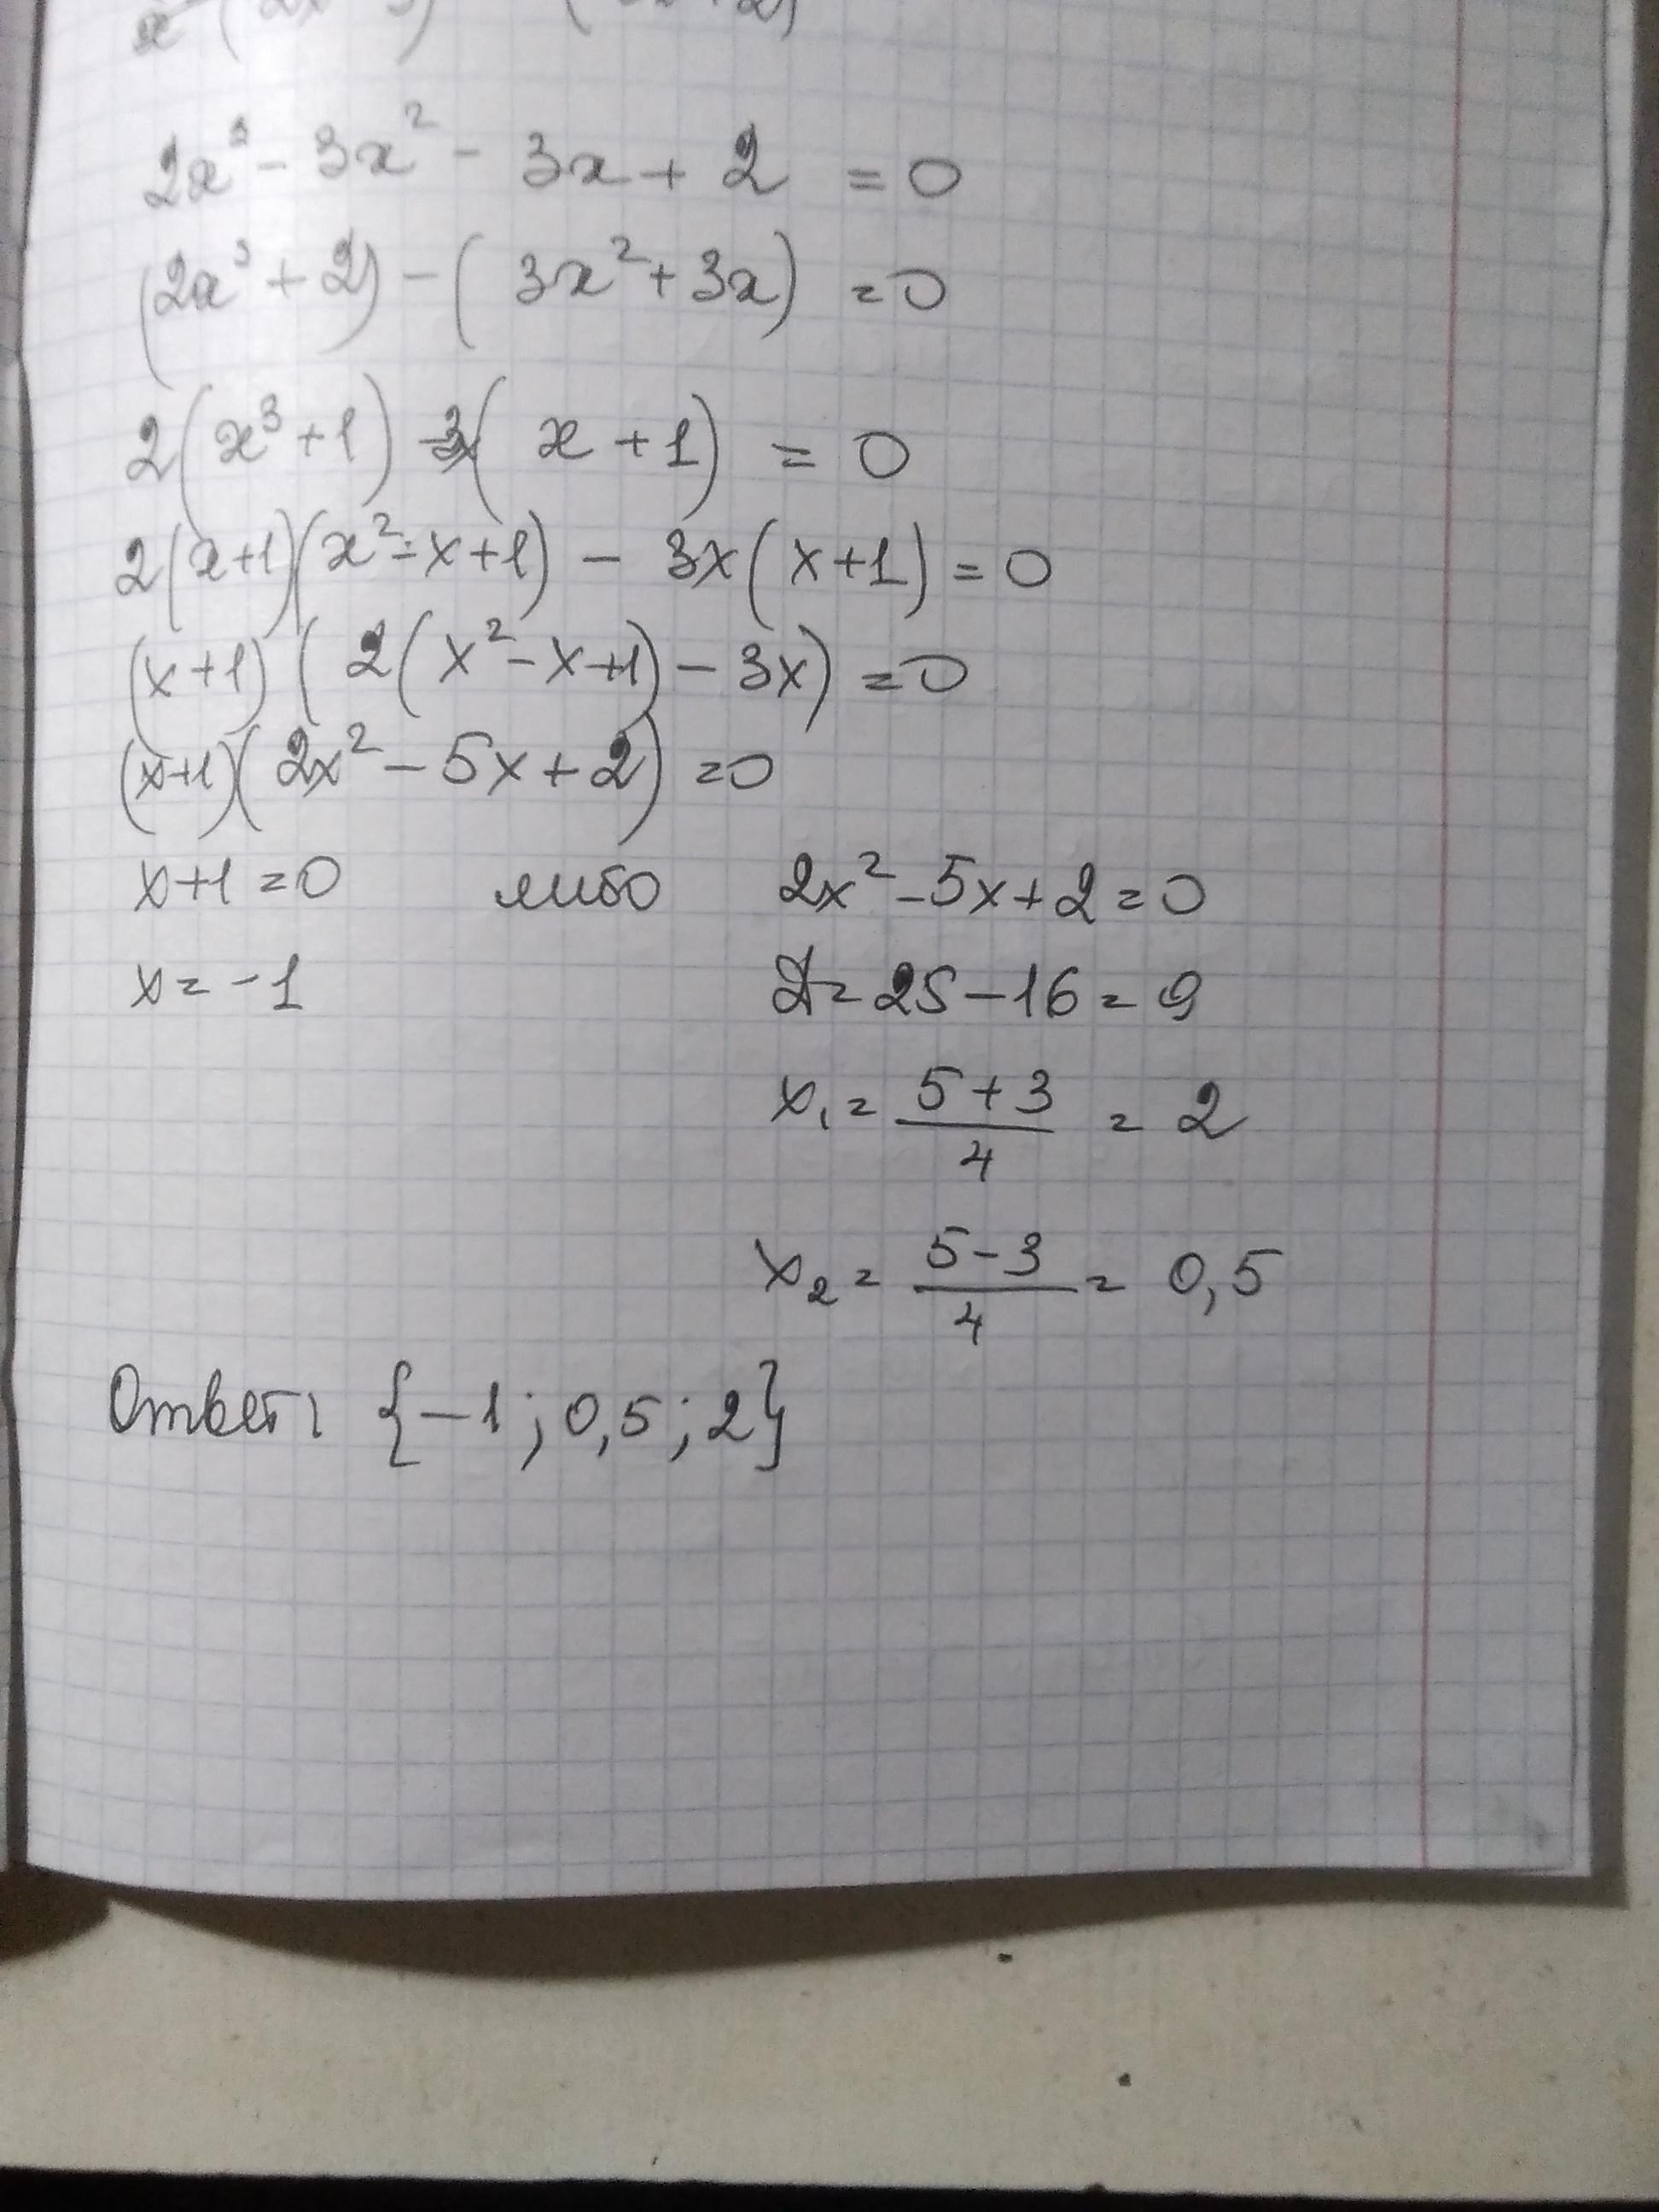 2x³ - 3x² - 3x + 2 = 0
(2x³ + 2) - (3x² + 3x) = 0
2(x³ + 1) - 3x(x + 1) = 0
2(x+1)(x² - x + 1) - 3x(x+1) = 0
(x+1)(2(x² - x + 1) - 3x) = 0
(x+1)(2x² - 5x + 2) = 0
x+1 = 0 либо 2x² - 5x + 2 = 0
x = -1 D = 25 - 16 = 9
x₁ = (5 + 3)/4 = 2
x₂ = (5 - 3)/4 = 0,5
Ответ: {-1; 0,5; 2}